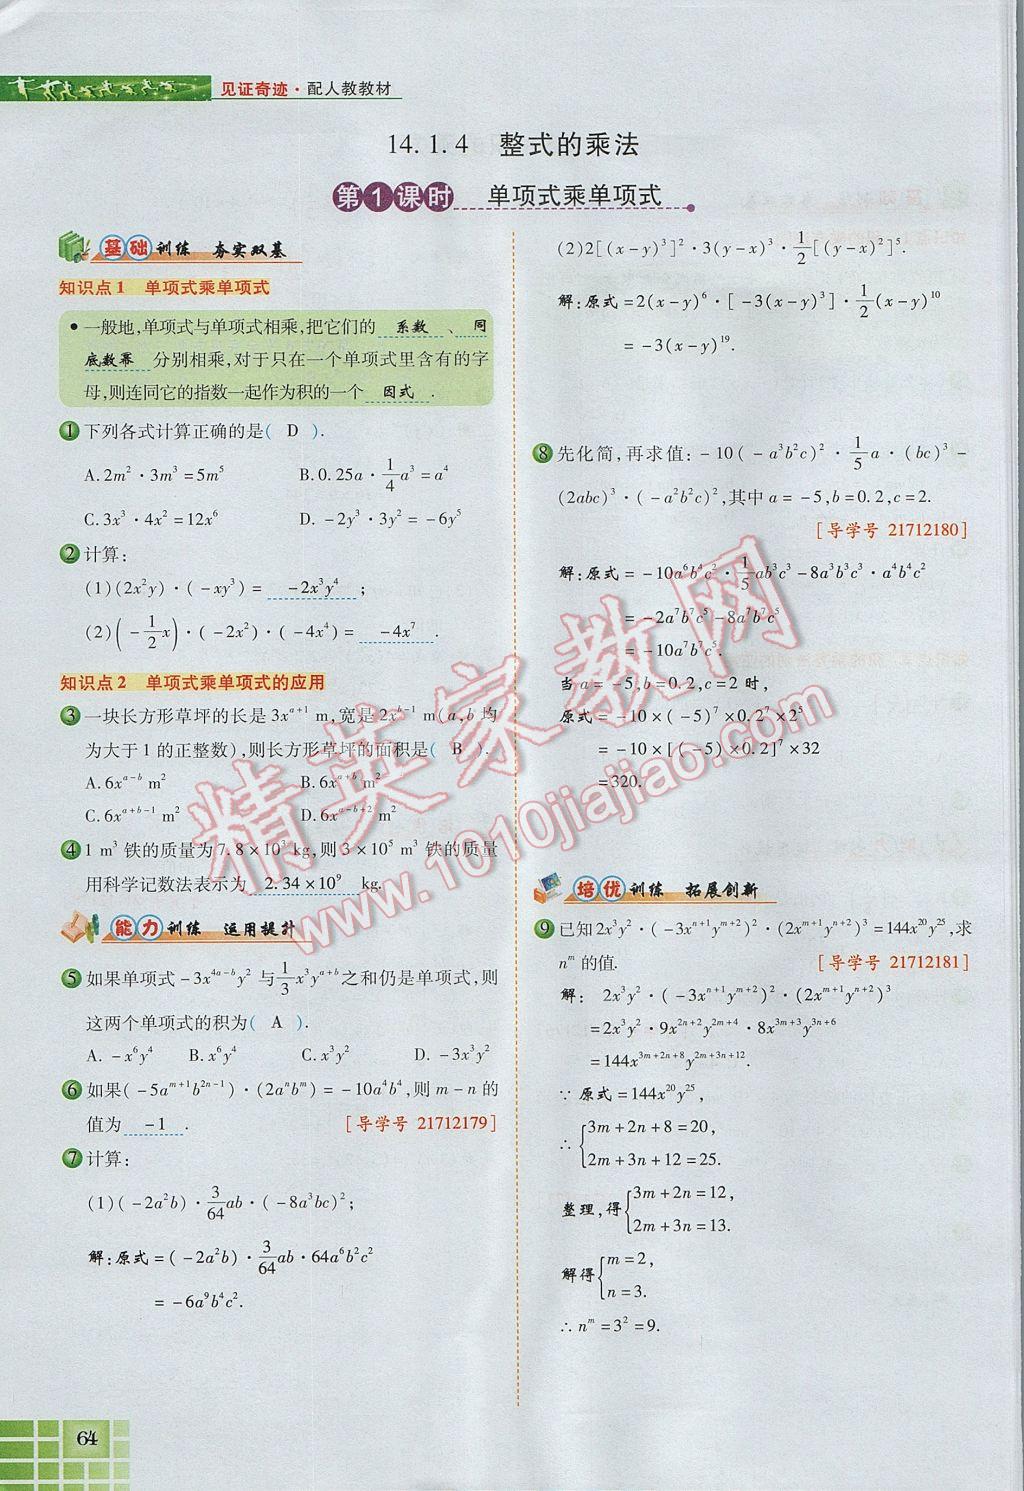 见证奇迹·配人教教材
14.1.4 整式的乘法
第1课时 单项式乘单项式
基础训练 夯实双基
知识点1 单项式乘单项式
•一般地,单项式与单项式相乘,把它们的 系数 、 同
底数幂 分别相乘,对于只在一个单项式里含有的字
母,则连同它的指数一起作为积的一个 因式 .
1 下列各式计算正确的是( D ).
A.2m²·3m³=5m⁵ B.0.25a·1/4a³=a⁴
C.3x³·4x²=12x⁶ D.-2y³·3y²=-6y⁵
2 计算:
(1)(2x²y)·(-xy³)= -2x³y⁴ ;
(2)(-1/2x)·(-2x²)·(-4x⁴)= -4x⁷ .
知识点2 单项式乘单项式的应用
3 一块长方形草坪的长是3xᵃ⁺¹ m,宽是2xᵇ⁻¹ m(a,b均
为大于1的正整数),则长方形草坪的面积是( B ).
A.6xᵃ⁻ᵇ m² B.6xᵃ⁺ᵇ m²
C.6xᵃ⁺ᵇ⁻¹ m² D.6xᵃ⁻ᵇ⁺² m²
4 1 m³ 铁的质量为7.8×10³ kg,则3×10⁵ m³ 铁的质量
用科学记数法表示为 2.34×10⁹ kg.
能力训练 运用提升
5 如果单项式-3x⁴ᵃ⁻ᵇy²与1/3x³yᵃ⁺ᵇ之和仍是单项式,则
这两个单项式的积为( A ).
A.-x⁶y⁴ B.x⁶y⁴ C.x³y² D.-3x³y²
6 如果(-5aᵐ⁺¹b²ⁿ⁻¹)·(2aⁿbᵐ)=-10a⁴b⁴,则m-n的
值为 -1 . [导学号 21712179]
7 计算:
(1)(-2a²b)·3/64ab·(-8a³bc)²;
解:原式=(-2a²b)·3/64ab·64a⁶b²c²
=-6a⁹b⁴c².
(2)2[(x-y)³]²·3(y-x)³·1/2[(x-y)²]⁵.
解:原式=2(x-y)⁶·[-3(x-y)³]·1/2(x-y)¹⁰
=-3(x-y)¹⁹.
8 先化简,再求值:-10(-a³b²c)²·1/5a·(bc)³-
(2abc)³·(-a²b²c)²,其中a=-5,b=0.2,c=2.
[导学号 21712180]
解:原式=-10a⁶b⁴c²·1/5ab³c³-8a³b³c³·a⁴b⁴c²
=-2a⁷b⁷c⁵-8a⁷b⁷c⁵
=-10a⁷b⁷c⁵.
当a=-5,b=0.2,c=2时,
原式=-10×(-5)⁷×0.2⁷×2⁵
=-10×[(-5)×0.2]⁷×32
=320.
培优训练 拓展创新
9 已知2x³y²·(-3xⁿ⁺¹yᵐ⁺²)²·(2xᵐ⁺¹yⁿ⁺²)³=144x²⁰y²⁵,求
nᵐ的值. [导学号 21712181]
解: 2x³y²·(-3xⁿ⁺¹yᵐ⁺²)²·(2xᵐ⁺¹yⁿ⁺²)³
=2x³y²·9x²ⁿ⁺²y²ᵐ⁺⁴·8x³ᵐ⁺³y³ⁿ⁺⁶
=144x³ᵐ⁺²ⁿ⁺⁸y²ᵐ⁺³ⁿ⁺¹².
∵原式=144x²⁰y²⁵,
∴{3m+2n+8=20,
2m+3n+12=25.
整理,得{3m+2n=12,
2m+3n=13.
解得{m=2,
n=3.
∴nᵐ=3²=9.
精英家教网
www.1010jiajiao.com
64